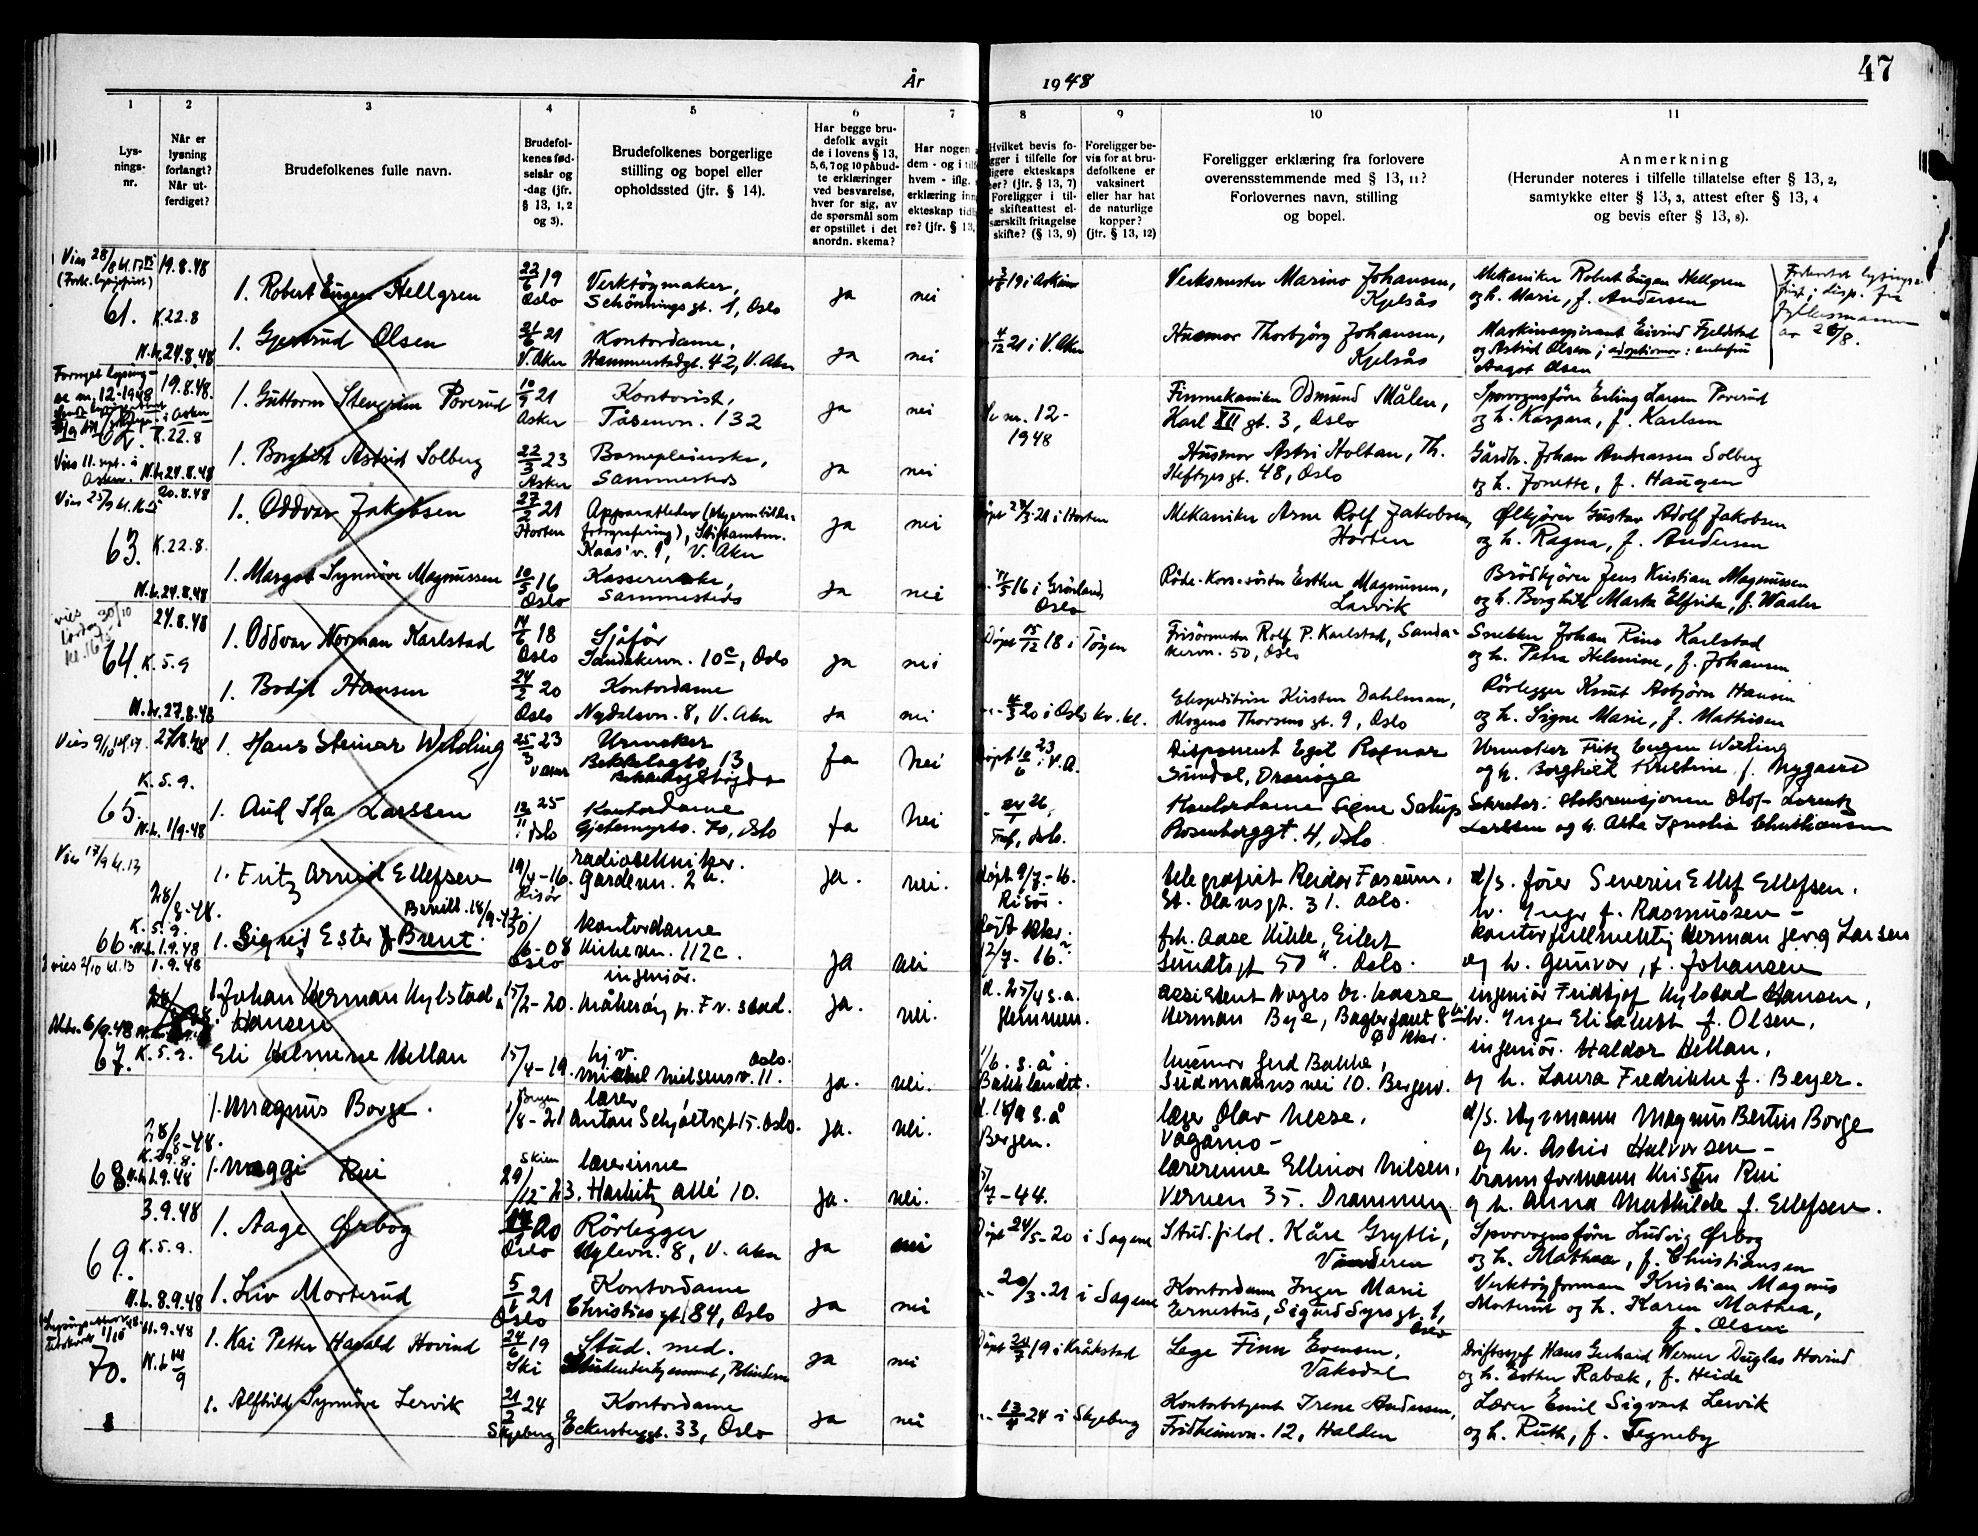 47
År 1948
1 2 3 4 5 6 7 8 9 10 11
Lys-
nings-
nr.
Når er
lysning
forlangt?
Når ut-
ferdiget?
Brudefolkenes fulle navn.
Brudefol-
kenes fød-
selsår og
-dag (jfr.
§ 13, 1, 2
og 3).
Brudefolkenes borgerlige
stilling og bopel eller
opholdssted (jfr. § 14).
Har begge bru-
defolk avgit
de i lovens § 13,
5, 6, 7 og 10 påbud-
te erklæringer
ved besvarelse,
hver for sig, av
de spørsmål som
er opstillet i det
anordn. skema?
Har nogen a
dem - og i tilf
hvem - iflg.
erklæring inn
ekteskap tidl
re? (jfr. § 13,
Hvilket bevis fo-
gger i tilfelle for
ligere ekteskaps
er? (jfr. § 13, 7)
Foreligger i til-
e skifteattest el-
særskilt fritagelse
skifte? (§ 13, 9)
Foreligger be-
vis for at bru-
defolkene er
vaksinert
eller har hat
de naturlige
kopper?
(jfr. § 13, 12)
Foreligger erklæring fra forlovere
overensstemmende med § 13, 11?
Forlovernes navn, stilling
og bopel.
Anmerkning
(Herunder noteres i tilfelle tillatelse efter § 13, 2,
samtykke efter § 13, 3, attest efter § 13, 4
og bevis efter § 13, 8).
61.
19.8.48
K.22.8
N.L.24.8.48
1. Robert Eugen Hellgren
22/6 19
Oslo
Verktøymaker,
Schönnings gt. 1, Oslo
ja nei
19 i Askim
Verksmester Marino Johansen,
Kjelsås
Mekaniker Robert Eugen Hellgren
og h. Marie, f. Andersen
1. Gjertrud Olsen
21/6 21
V. Aker
Kontordame,
Hammerstadgt. 42, V. Aker
ja nei
4/12 21 i V. Aker
Husmor Thorbjörg Johansen,
Kjelsås
Maskinaspirant Eivind Fjeldstad
og Astrid Olsen; adoptivmor:
Aagot Olsen
62.
19.8.48.
K.22.8
N.L.24.8.48
Vies 11. sept. i
Asker.
1. Guttorm Stengrim Poverud
10/9 21
Asker
Kontorist,
Tåsenvn. 132
ja nei
Se nr. 12-
1948
Finmekaniker Odmund Målen,
Karl XII gt. 3, Oslo
Sporvognsfører Erling Larsen Poverud
og h. Kaspara, f. Karlsen
1. Borghild Astrid Solberg
22/3 23
Asker
Barnepleierske,
Sammesteds
ja nei
Husmor Astri Holtan, Th.
Heftyes gt. 48, Oslo
Gårdbr. Johan Andreassen Solberg
og h. Jonette, f. Haugen
63.
20.8.48
K.22.8.
N.L.24.8.48
1. Oddvar Jakobsen
27/2 21
Horten
Kaas' v. 1, V. Aker
ja nei
21 i Horten
Mekaniker Arne Rolf Jakobsen,
Horten
Ølkjører Gustav Adolf Jakobsen
og h. Ragna, f. Andersen
1. Margot Synnöve Magnussen
10/5 16
Oslo
Kassererske,
Sammesteds
ja nei
16 i Grønland,
Oslo
Röde-Kors-söster Esther Magnussen,
Larvik
Brödkjører Jens Kristian Magnussen
og h. Borghild Marta Elfrida, f. Waaler
64.
24.8.48
K. 5.9
N.L.27.8.48
1. Oddvar Norman Karlstad
14/6 18
Oslo
Sjåfør
Sandakervn. 10c, Oslo
ja nei
Döpt 15/12 18 i Töyen
Frisörmester Rolf P. Karlstad, Sanda-
kervn. 50, Oslo
Snekker Johan Rino Karlstad
og h. Petra Helmine, f. Johansen
1. Bodil Hansen
24/2 20
Oslo
Kontordame
Nydalsvn. 8, V. Aker
ja nei
20 i Oslo kr. kl.
Ekspeditrise Kirsten Dahlman,
Mogens Thorsens gt. 9, Oslo
Rörlegger Knut Asbjörn Hansen
og h. Signe Marie, f. Mathisen
65.
27/8.48
K. 5.9.
N.L. 1/9.48
1. Hans Steinar Welding
25/3 23
V Aker
Urmaker
13
ja nei
Döpt 10/6 23 i V.A.
Disponent Egil Ragnar
Sundal,
Urmaker Fritz Eugen Welding
og h. Borghild Kristine f. Nygaard
1. Aud Ida Larssen
13/11 25
Oslo
Kontordame
Gjetemyrsv. 70, Oslo
ja nei
Oslo.
Kontordame Signe
Rosenborggt. 4, Oslo
Olof Lorentz
Larssen og h. Asta f. Christiansen
66.
Vies 17/9 kl. 13
28/8-48.
K. 5. 9.
N.L. 1.9.48
1. Fritz Arvid Ellefsen
19/4-16.
Risör
radiotekniker.
Gardevn. 2a.
ja. nei.
döpt 9/7.-16.
Risör.
telegrafist Reidar Fossum.
St. Olavsgt. 31. Oslo.
d/s. fører Severin Ellef Ellefsen.
h. Inger f. Rasmussen -
1. Sigrid Ester f. Brent.
30/6-08
Oslo
kontordame
Kirkevn. 112c.
ja nei
12/7-16.
frk. Aase Kihle, Eilert
Sundtsgt 50. Oslo.
kontorfullmektig Herman Georg Larsen
og h. Gunvor, f. Johansen
67.
vies 2/10 kl.13
1.9.48
K. 5.9.
1. Johan Herman Kylstad
Hansen
15/2-20.
ingeniör.
ja. nei.
d. 25/4 s.a.
assistent Norges br. kasse
Herman Bye,
ingeniör Fridtjof Kylstad Hansen,
h. Inger Elisabeth f. Olsen.
Eli Helmine Hellan
15/4-19.
hj. v. Oslo.
Michael Nielsens v. 11.
ja. nei.
1/6. s.å.
Bakklandet.
husmor Gerd Bakke,
Sudmanns vei 10. Bergen.
ingeniör Haldor Hellan,
og h. Laura Fredrikke f. Beyer.
68.
28/8-48.
K. 29.8.
N.L.1.9.48
1. Magnus Borge.
Bergen
1/8-21
lærer
Anton Schjøthsgt 15. Oslo.
ja. nei.
s.å
Bergen.
lærer Olav Nesse.
Vågåmo -
d/s. styrmann Magnus Bertin Borge
og h. Astrid Halvorsen -
1. Maggi Rui
Skien
29/12-23.
lærerinne
Harbitz allé 10.
ja. nei.
7-44.
lærerinne Ellinor Nilsen,
Verven 35. Drammen
brannformann Kristen Rui
og h. Anna Mathilde f. Ellefsen.
69.
3.9.48
K. 5.9.
N.L. 8.9.48
1. Aage Ørbog
20
Oslo
Rörlegger
Uglevn. 8, V. Aker
ja nei
Döpt 24/5-20 i Sagene
Stud. filol. Kåre Grytli,
Vinderen
Sporvognsfører Ludvig Ørbog
og h. Mathea, f. Christiansen
1. Liv Morterud
5/1 21
Oslo
Kontordame
Christies gt. 84, Oslo
ja nei
20/3-21 i Sagene
Kontordame Inger Marie
Ernestus, Sigurd Syrs gt. 1,
Oslo
Verktøyformann Kristian Magnus
Morterud og h. Karen Mathea,
f. Olsen
70.
11.9.48
N.L. 14/9
1. Kai Petter Harald Hovind
24/6 19
Ski
Stud. med.
Studenterhjemmet, Blindern
ja nei
Döpt 20/7 19 i Kråkstad
Lege Finn Evensen,
Vaksdal
Driftssjef Hans Gerhard Werner Duglas Hovind
og h. Esther Rabæk, f. Heide
1. Alfhild Synnöve Lervik
21/2 24
Skjeberg
Kontordame
Eckersbergsgt. 33, Oslo
ja nei
13/4 24 i Skjeberg
Kontorbetjent Irene Andersen,
Fridheimvn. 12, Halden
Lærer Emil Sigvart Lervik
og h. Ruth, f. Tegneby